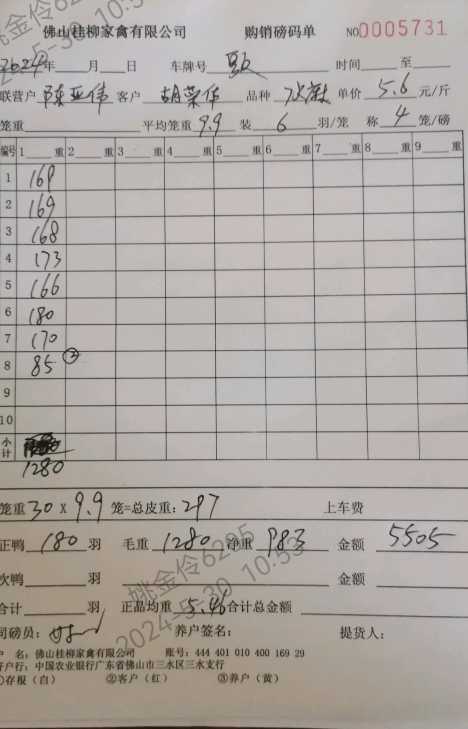 佛山桂柳家禽有限公司 购销磅码单 NO0005731
2024年 月 日 车牌号 时间 至
联营户 陈亚伟 客户 胡荣伟 品种 单价 5.6 元/斤
笼重 平均笼重 9.9 装 6 羽/笼 称 4 笼/磅
编号 1 重 2 重 3 重 4 重 5 重 6 重 7 重 8 重 9 重
1 169
2 169
3 168
4 173
5 166
6 180
7 170
8 85 ②
9
10
小计
1280
笼重 30 X 9.9 笼=总皮重: 297 上车费
正鸭 180 羽 毛重 1280 净重 983 金额 5505
次鸭 羽 金额
合计 羽 正品均重 5.46 合计总金额
司磅员: 养户签名: 提货人:
户 名: 佛山桂柳家禽有限公司 账号: 444 401 010 400 169 29
开户行: 中国农业银行广东省佛山市三水区三水支行
①存根(白) ②客户(红) ③养户(黄)
姚金伶6205
2024-5-30 10:53